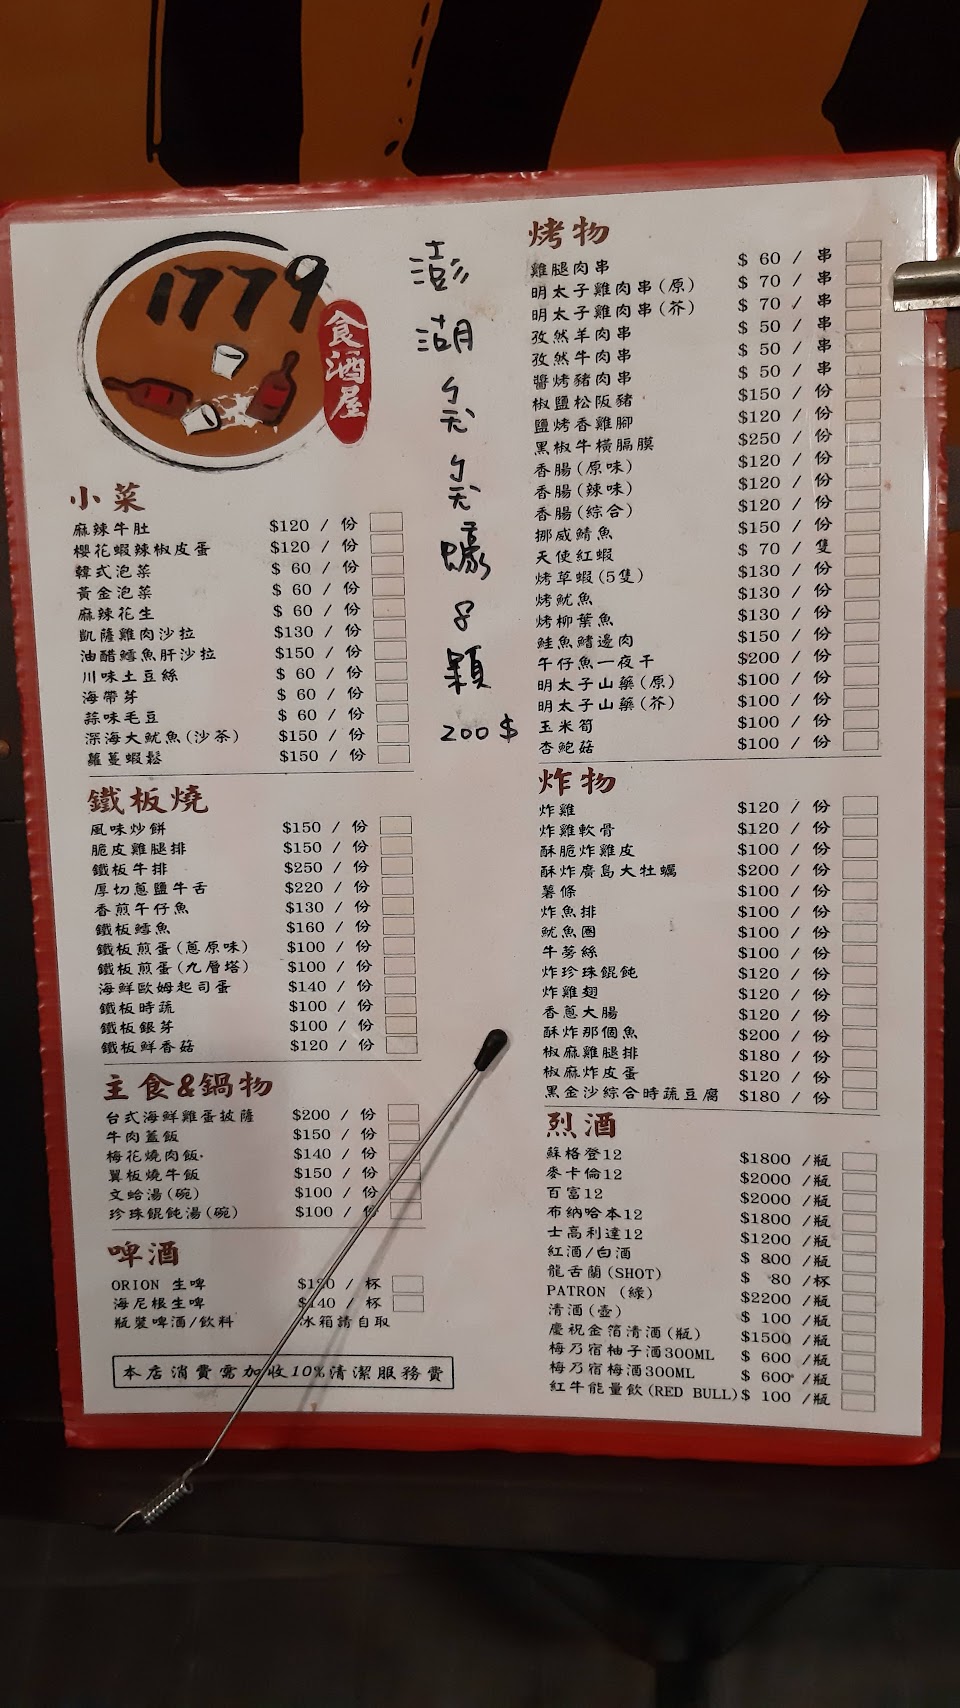 1779
食酒屋
澎湖ㄅㄤㄅㄤ蠔8顆200$
小菜
麻辣牛肚 $120 / 份
櫻花蝦辣椒皮蛋 $120 / 份
韓式泡菜 $ 60 / 份
黃金泡菜 $ 60 / 份
麻辣花生 $ 60 / 份
凱薩雞肉沙拉 $130 / 份
油醋鱈魚肝沙拉 $150 / 份
川味土豆絲 $ 60 / 份
海帶芽 $ 60 / 份
蒜味毛豆 $ 60 / 份
深海大魷魚(沙茶) $150 / 份
蘿蔓蝦鬆 $150 / 份
鐵板燒
風味炒餅 $150 / 份
脆皮雞腿排 $150 / 份
鐵板牛排 $250 / 份
厚切蔥鹽牛舌 $220 / 份
香煎午仔魚 $130 / 份
鐵板鱈魚 $160 / 份
鐵板煎蛋(蔥原味) $100 / 份
鐵板煎蛋(九層塔) $100 / 份
海鮮歐姆起司蛋 $140 / 份
鐵板時蔬 $100 / 份
鐵板銀芽 $100 / 份
鐵板鮮香菇 $120 / 份
主食&鍋物
台式海鮮雞蛋披薩 $200 / 份
牛肉蓋飯 $150 / 份
梅花燒肉飯 $140 / 份
翼板燒牛飯 $150 / 份
文蛤湯(碗) $100 / 份
珍珠餛飩湯(碗) $100 / 份
啤酒
ORION 生啤 $120 / 杯
海尼根生啤 $140 / 杯
瓶裝啤酒/飲料 冰箱請自取
本店消費需加收10%清潔服務費
烤物
雞腿肉串 $ 60 / 串
明太子雞肉串(原) $ 70 / 串
明太子雞肉串(芥) $ 70 / 串
孜然羊肉串 $ 50 / 串
孜然牛肉串 $ 50 / 串
醬烤豬肉串 $ 50 / 串
椒鹽松阪豬 $150 / 份
鹽烤香雞腳 $120 / 份
黑椒牛橫膈膜 $250 / 份
香腸(原味) $120 / 份
香腸(辣味) $120 / 份
香腸(綜合) $120 / 份
挪威鯖魚 $150 / 份
天使紅蝦 $ 70 / 隻
烤草蝦(5隻) $130 / 份
烤魷魚 $130 / 份
烤柳葉魚 $130 / 份
鮭魚鰭邊肉 $150 / 份
午仔魚一夜干 $200 / 份
明太子山藥(原) $100 / 份
明太子山藥(芥) $100 / 份
玉米筍 $100 / 份
杏鮑菇 $100 / 份
炸物
炸雞 $120 / 份
炸雞軟骨 $120 / 份
酥脆炸雞皮 $100 / 份
酥炸廣島大牡蠣 $200 / 份
薯條 $100 / 份
炸魚排 $100 / 份
魷魚圈 $100 / 份
牛蒡絲 $100 / 份
炸珍珠餛飩 $120 / 份
炸雞翅 $120 / 份
香蔥大腸 $120 / 份
酥炸那個魚 $200 / 份
椒麻雞腿排 $180 / 份
椒麻炸皮蛋 $120 / 份
黑金沙綜合時蔬豆腐 $180 / 份
烈酒
蘇格登12 $1800 /瓶
麥卡倫12 $2000 /瓶
百富12 $2000 /瓶
布納哈本12 $1800 /瓶
士高利達12 $1200 /瓶
紅酒/白酒 $ 800 /瓶
龍舌蘭(SHOT) $ 80 /杯
PATRON (綠) $2200 /瓶
清酒(壺) $ 100 /瓶
慶祝金箔清酒(瓶) $1500 /瓶
梅乃宿柚子酒300ML $ 600 /瓶
梅乃宿梅酒300ML $ 600 /瓶
紅牛能量飲(RED BULL) $ 100 /瓶